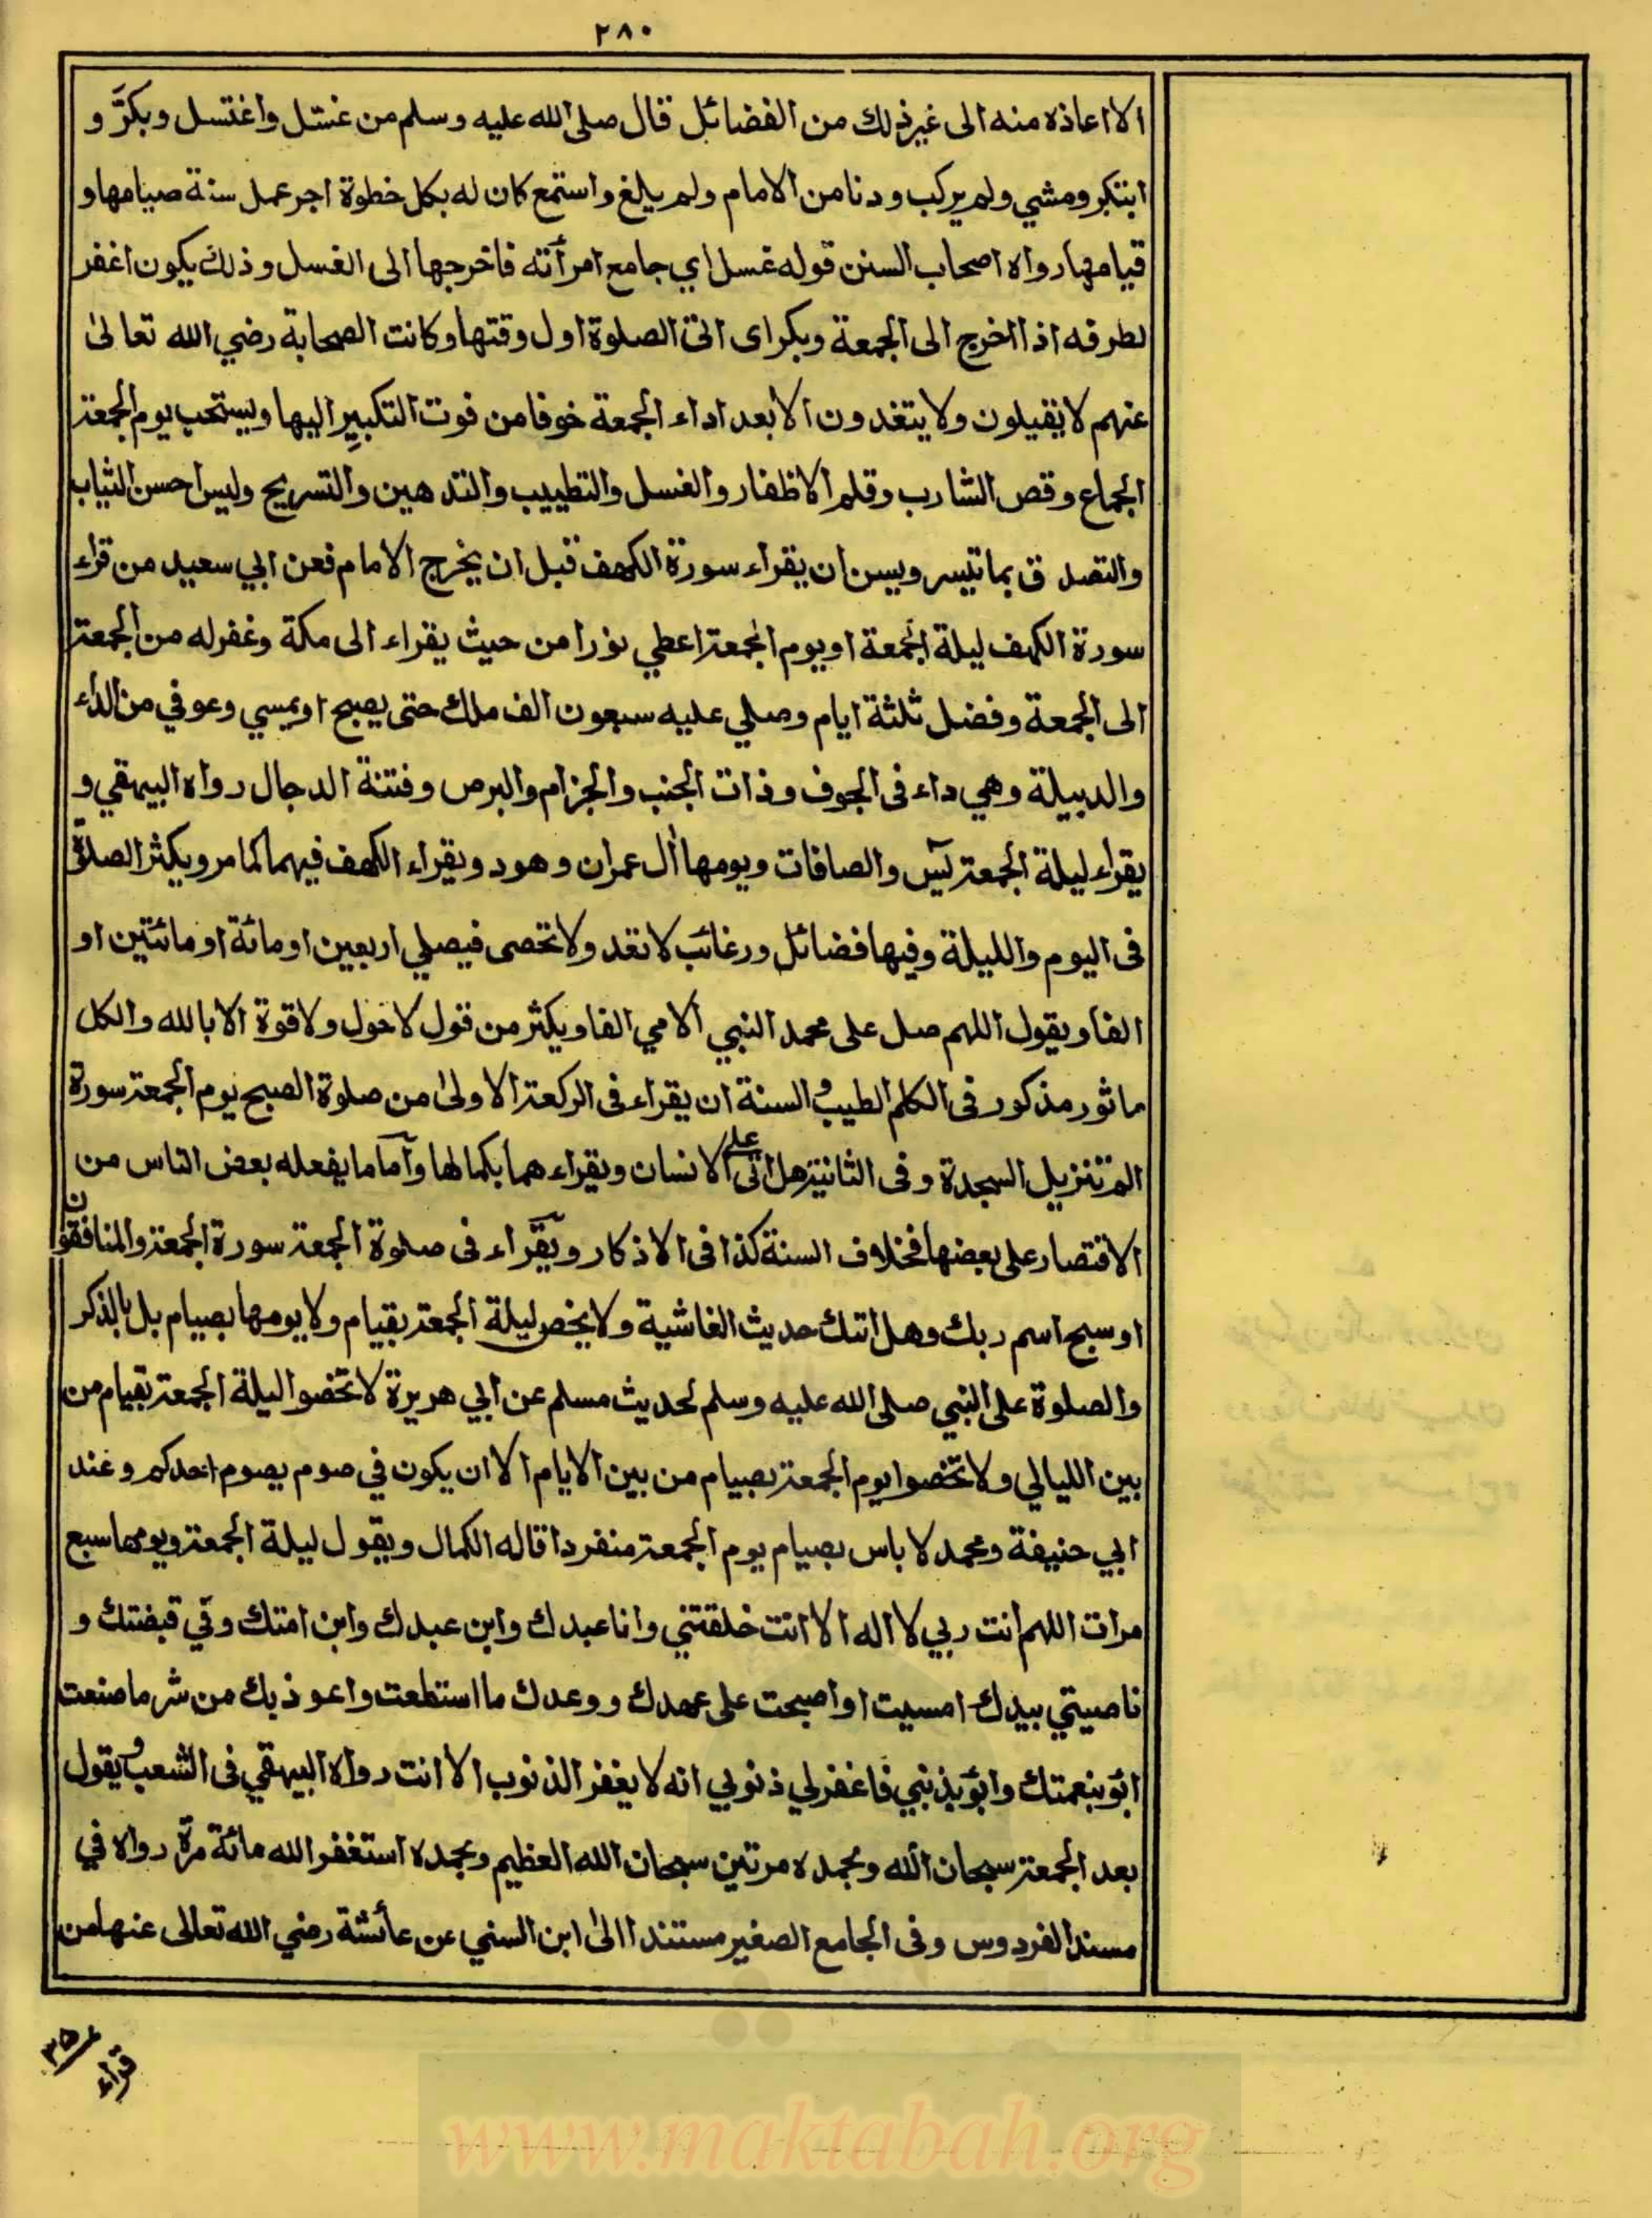 ٢٨٠
الا اعاذه منه الى غير ذلك من الفضائل قال صلى الله عليه وسلم من غسّل واغتسل وبكرّ و
ابتكر ومشي ولم يركب ودنا من الامام ولم يلغ واستمع كان له بكل خطوة اجر عمل سنة صيامها و
قيامها رواه اصحاب السنن قوله غسل اي جامع امرأته فاخرجها الى الغسل وذلك يكون اغفر
لطرفه اذا اخرج الى الجمعة وبكر اى اتى الصلوة اول وقتها وكانت الصحابة رضي الله تعالىٰ
عنهم لا يقيلون ولا يتغدون الا بعد اداء الجمعة خوفا من فوت التكبير اليها ويستحب يوم الجمعة
الجماع وقص الشارب وقلم الاظفار والغسل والتطييب والتدهين والتسريح ولبس احسن الثياب
والتصدق بما تيسر ويسن ان يقراء سورة الكهف قبل ان يخرج الامام فعن ابي سعيد من قراء
سورة الكهف ليلة الجمعة او يوم الجمعة اعطي نورا من حيث يقراء الى مكة وغفر له من الجمعة
الى الجمعة وفضل ثلثة ايام وصلي عليه سبعون الف ملك حتى يصبح او يمسي وعوفي من الداء
والدبيلة وهي داء فى الجوف وذات الجنب والجزام والبرص وفتنة الدجال رواه البيهقي و
يقراء ليلة الجمعة يٰسٓ والصافات ويومها اٰل عمران وهود ويقراء الكهف فيهما كما مر ويكثر الصلٰوة
فى اليوم والليلة وفيها فضائل ورغائب لا تعد ولا تحصى فيصلي اربعين او مائة او مائتين او
الفا ويقول اللهم صل على محمد النبي الامي الفا ويكثر من قول لا حول ولا قوة الا بالله والكل
ماثور مذكور فى الكلم الطيب و السنة ان يقراء فى الركعة الاولىٰ من صلوة الصبح يوم الجمعة سورة
الم تنزيل السجدة وفى الثانية هل اتى على الانسان ويقراء هما بكمالها وأما ما يفعله بعض الناس من
الاقتصار على بعضها فخلاف السنة كذا فى الاذكار ويقراء فى صلوة الجمعة سورة الجمعة والمنافقون
او سبح اسم ربك وهل اتىك حديث الغاشية ولا يخص ليلة الجمعة بقيام ولا يومها بصيام بل بالذكر
والصلوة على النبي صلى الله عليه وسلم لحديث مسلم عن ابي هريرة لا تخصوا ليلة الجمعة بقيام من
بين الليالي ولا تخصوا يوم الجمعة بصيام من بين الايام الا ان يكون في صوم يصوم احدكم وعند
ابي حنيفة ومحمد لا باس بصيام يوم الجمعة منفردا قاله الكمال ويقول ليلة الجمعة ويومها سبع
مرات اللهم انت ربي لا اله الا انت خلقتني وانا عبدك وابن عبدك وابن امتك وفي قبضتك و
ناصيتي بيدك امسيت او اصبحت على عهدك ووعدك ما استطعت واعوذ بك من شر ما صنعت
ابؤ بنعمتك وابؤ بذنبي فاغفر لي ذنوبي انه لا يغفر الذنوب الا انت رواه البيهقي فى الشعب و يقول
بعد الجمعة سبحان الله وبحمده مرتين سبحان الله العظيم وبحمده استغفر الله مائة مرّة رواه في
مسند الفردوس وفى الجامع الصغير مستندا الىٰ ابن السني عن عائشة رضي الله تعالى عنها من
قراء
www.maktabah.org